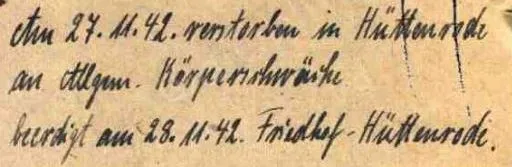 Am 27. 11. 42. verstorben in Hüttenrode
an Allgem. Körperschwäche
beerdigt am 28. 11. 42. Friedhof - Hüttenrode.